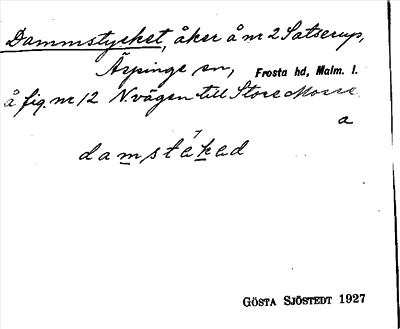 Dammstycket, åker å nr 2 Satserup,
Äspinge sn, Frosta hd, Malm. l.
å fig. nr 12 N. vägen till Store Mosse
a
damstákad
GÖSTA SJÖSTEDT 1927